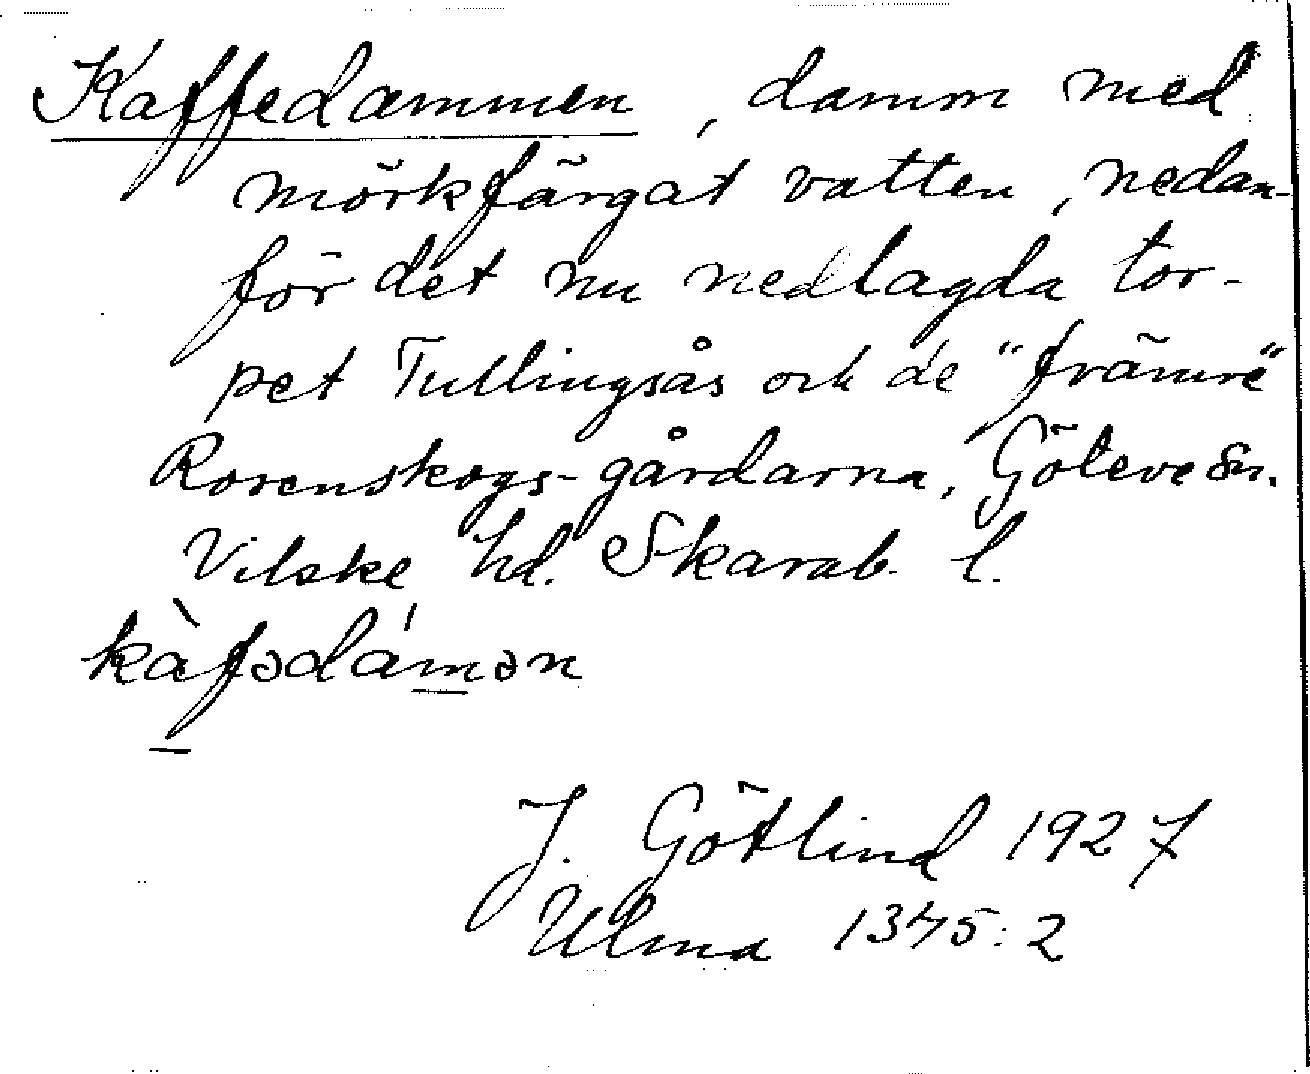 Kaffedammen, damm med
mörkfärgat vatten, nedan-
för det nu nedlagda tor-
pet Tullingsås och de "främre"
Rosenskogs-gårdarna, Göteve sn.
Vilske hd. Skarab. l.
kàfədámən
J. Götlind 1927
Ulma 1345:2